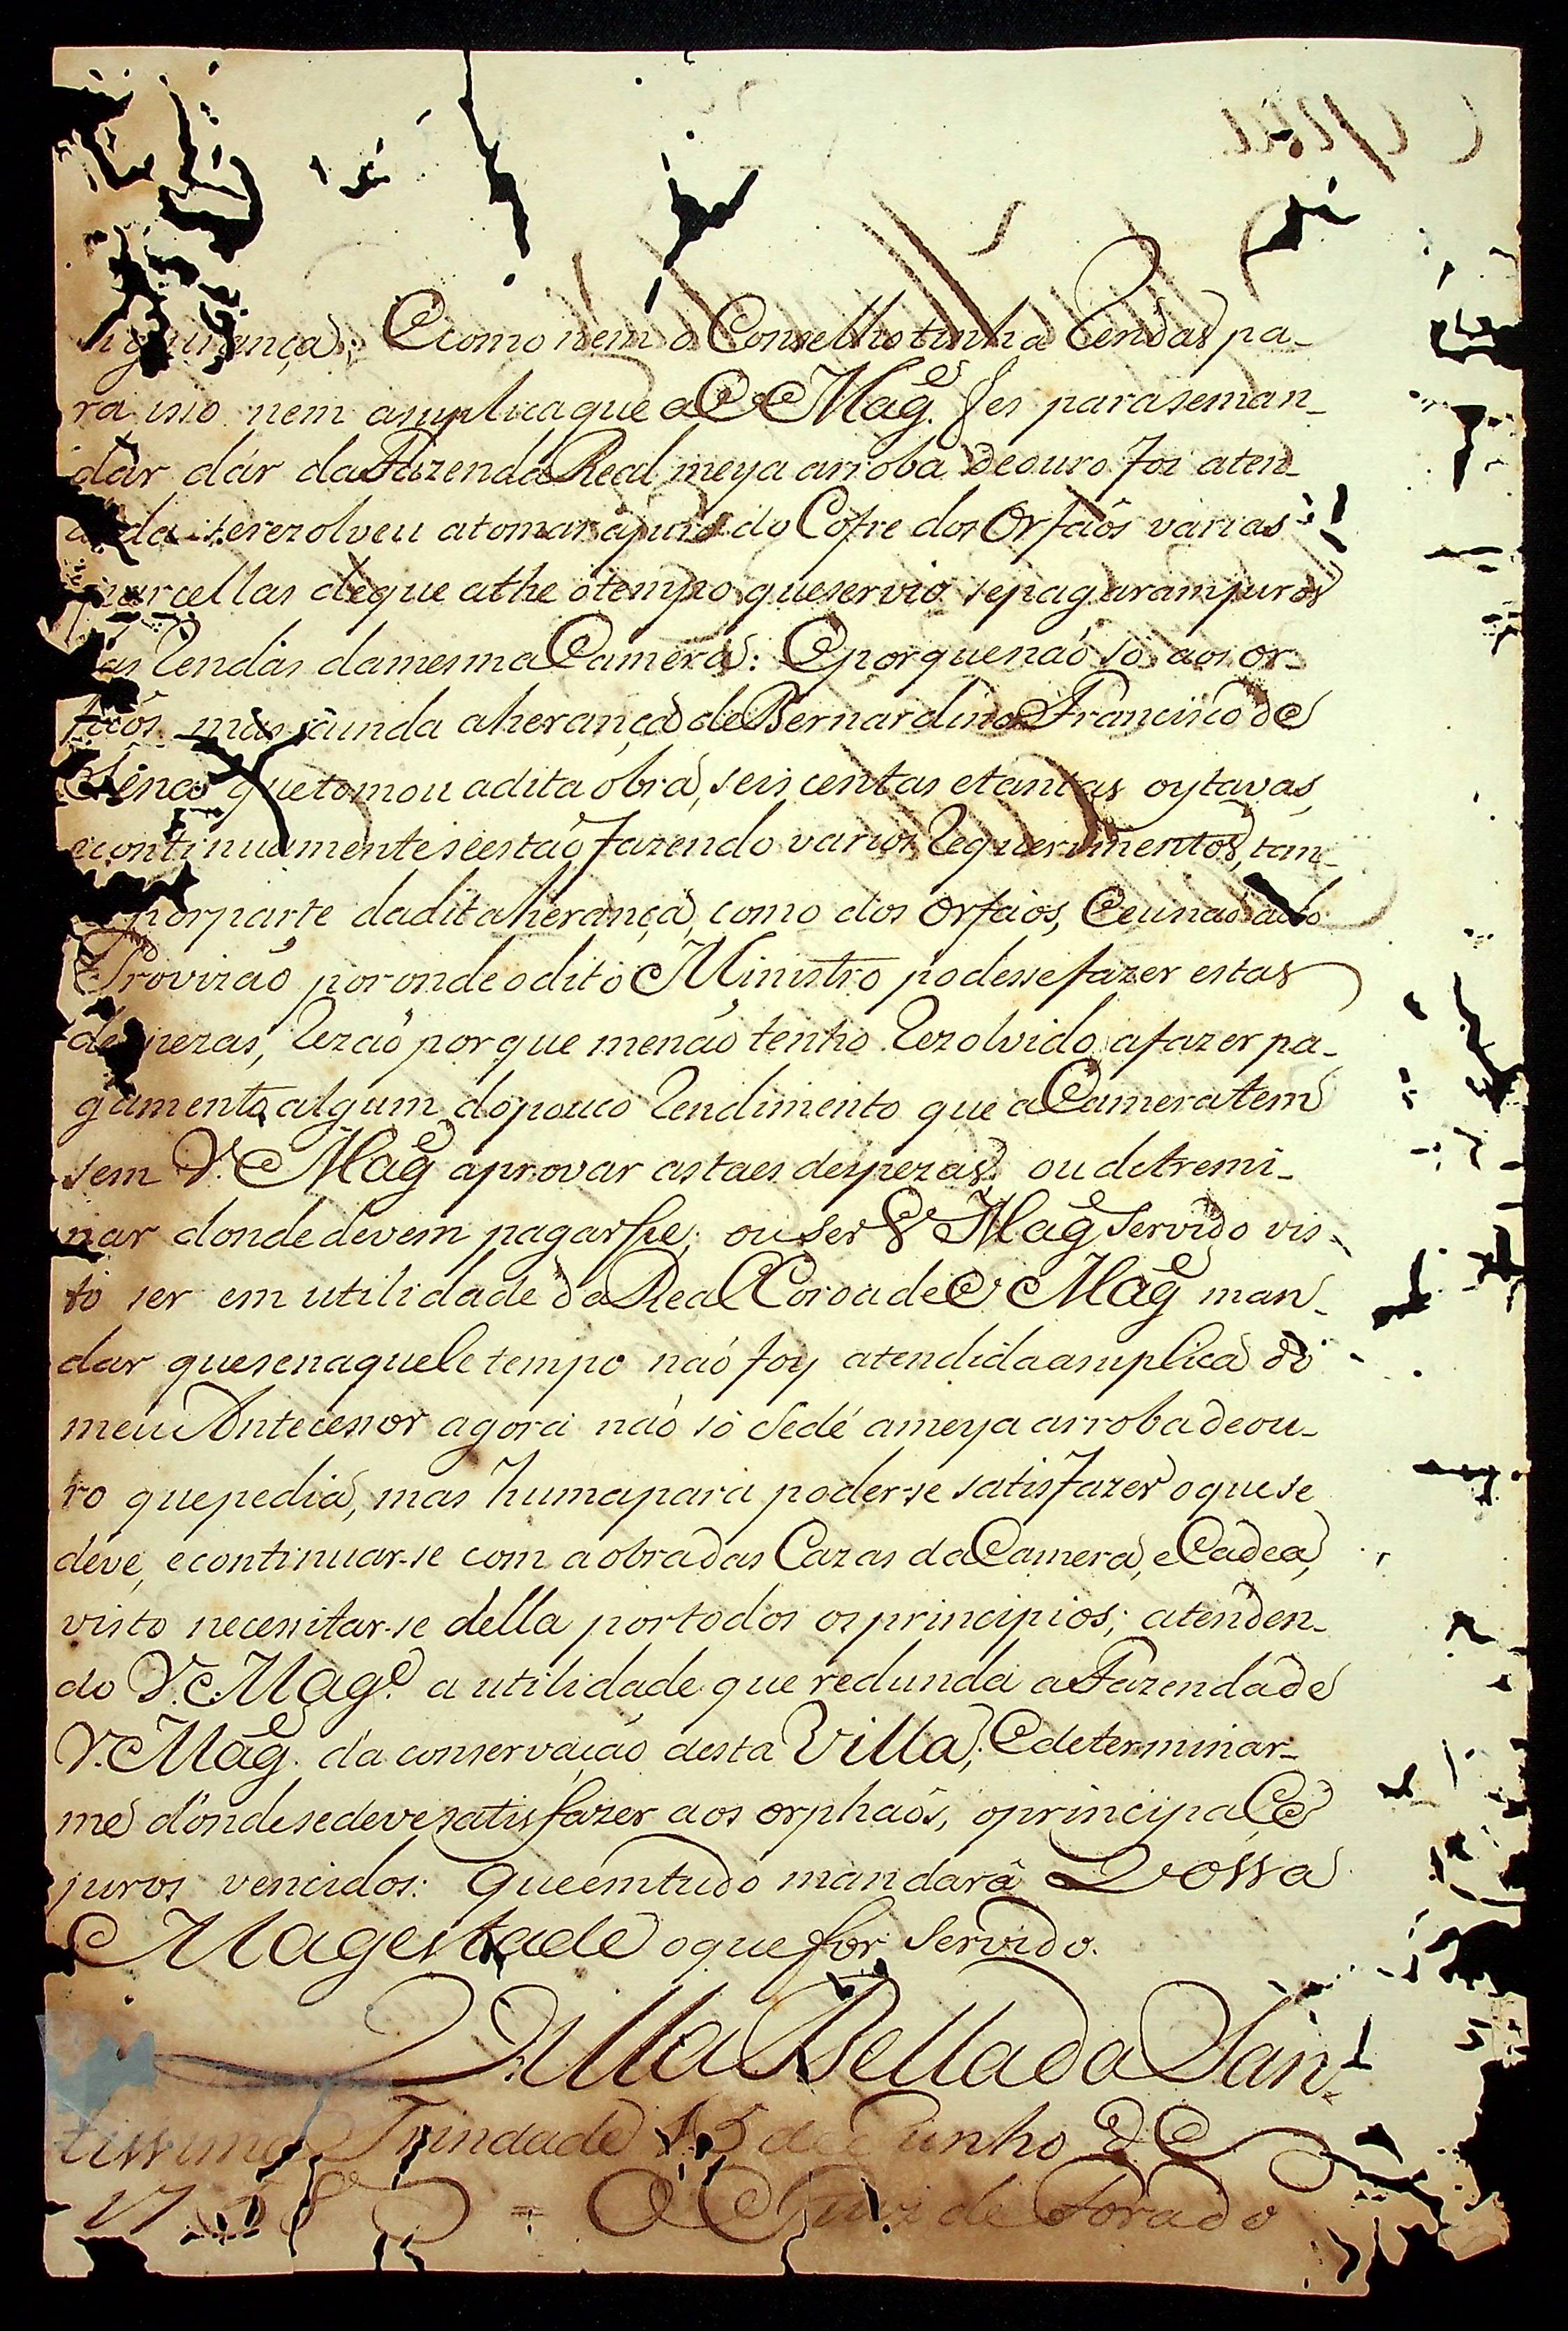 sigurança; E como nem o Conselho tinha Rendas pa-
ra isso nem a suplica que a V. Mag.es fes para se man-
dár dár da Fazenda Real meya arroba de ouro foi aten-
dida se rezolveu a tomar a juro do Cofre dos Orfaôs varias
parcellas de que athe o tempo que servio se pagaram juros
das Rendas da mesma Camera: E porque naó só aos or-
faós mas ainda a herança de Bernardino Francisco de
Sena que tomou a dita obra, seis centas e tantas oytavas,
e continuamente se estaó fazendo varios Requerimentos, tan-
to por parte da dita herança, como dos Orfaos, E eu naó acho
Provizaó por onde o dito Ministro podesse fazer estas
despezas, Rezaó porque me naó tenho Rezolvido a fazer pa-
gamento algum do pouco Rendimento que a Camera tem
sem V. Mag.e aprovar as taes despezas; ou detremi-
nar donde devem pagarse; ou ser V. Mag.e Servido vis-
to ser em utilidade da Real Coroa de V. Mag.e man-
dar que se naquele tempo naó foy atendida a suplica do
meu Antecessor agora naó só se dé a meya arroba de ou-
ro que pedia, mas huma para poder-se satisfazer o que se
deve, e continuar-se com a obra das Cazas da Camera, e Cadea,
visto necessitar-se della por todos os principios; atenden-
do V. Mag.e a utilidade que redunda a Fazenda de
V. Mag.e da conservaçaó desta Villa; E determinar-
me donde se deve satisfazer aos orphaôs, o principal e
juros vencidos: que em tudo mandará Vossa
Magestade o que for Servido.
Villa Bella da San-
tissima Trindade 15 de Junho de
O Juiz de Fora do